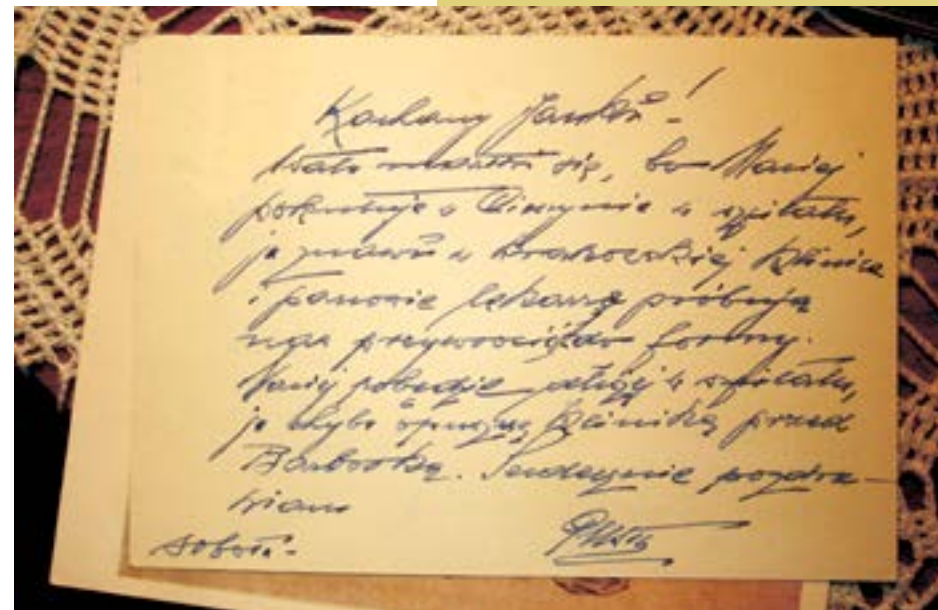 Kochany Janku!
bo Maciej
pokutuje w Cieszynie w szpitalu,
ja znowu w krakowskiej klinice
i panowie lekarze próbują
nas przywrócić do formy.
Maciej pobędzie dłużej w szpitalu,
ja chyba opuszczę klinikę przed
Barbórką. Serdecznie pozdra-
wiam
sobota.